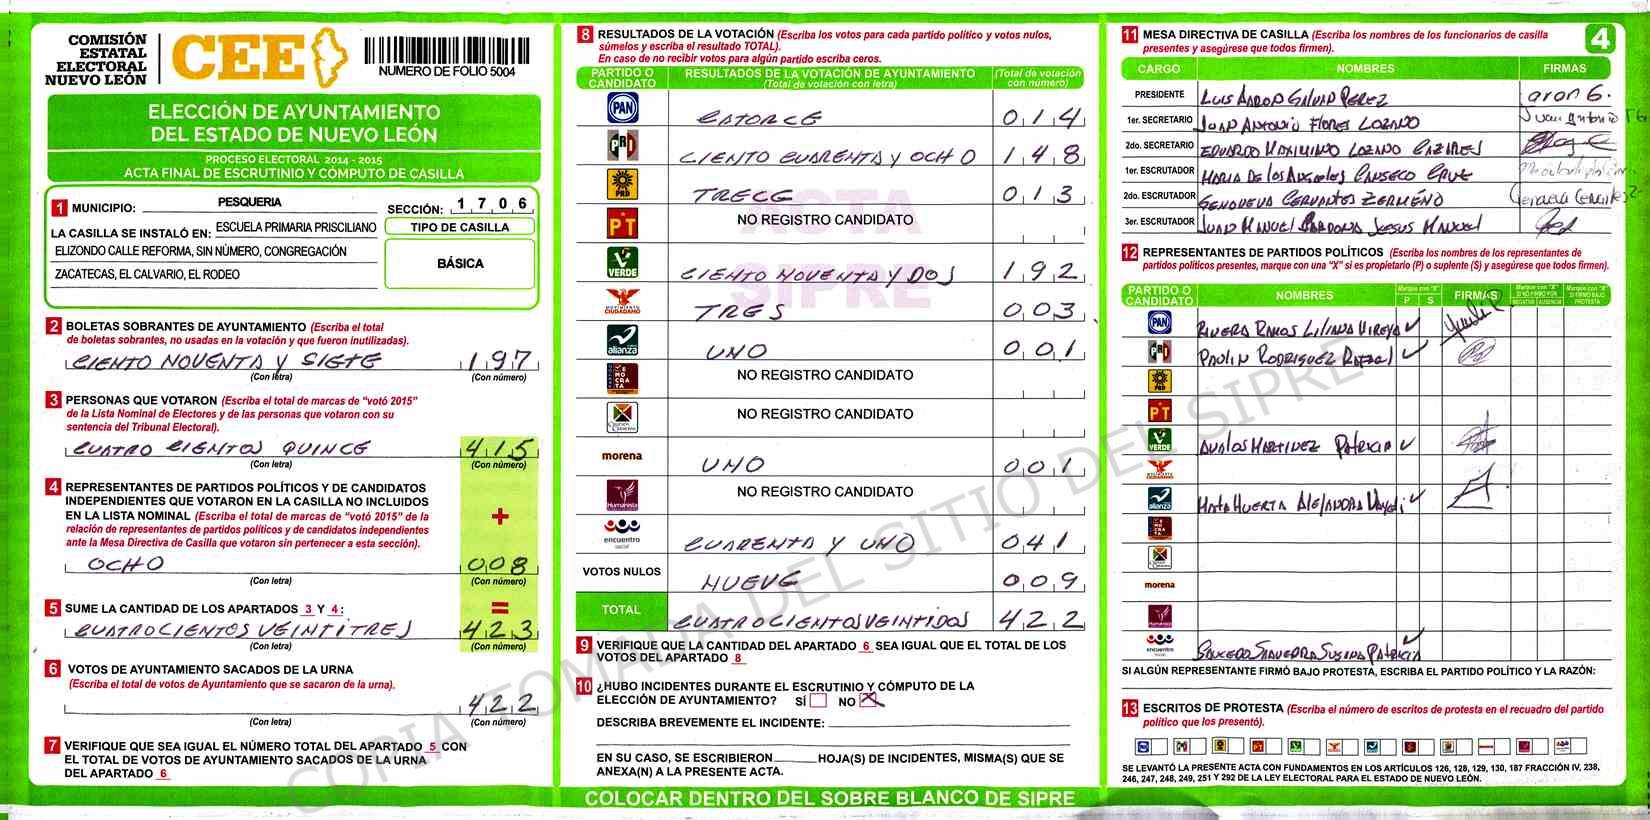 COMISIÓN
ESTATAL
ELECTORAL
NUEVO LEÓN
CEE
NUMERO DE FOLIO 5004
ELECCIÓN DE AYUNTAMIENTO
DEL ESTADO DE NUEVO LEÓN
PROCESO ELECTORAL 2014 - 2015
ACTA FINAL DE ESCRUTINIO Y CÓMPUTO DE CASILLA
1 MUNICIPIO: PESQUERIA SECCIÓN: 1 7 0 6
LA CASILLA SE INSTALÓ EN: ESCUELA PRIMARIA PRISCILIANO
ELIZONDO CALLE REFORMA, SIN NÚMERO, CONGREGACIÓN
ZACATECAS, EL CALVARIO, EL RODEO
TIPO DE CASILLA
BÁSICA
2 BOLETAS SOBRANTES DE AYUNTAMIENTO (Escriba el total
de boletas sobrantes, no usadas en la votación y que fueron inutilizadas).
CIENTO NOVENTA Y SIETE 197
(Con letra) (Con número)
3 PERSONAS QUE VOTARON (Escriba el total de marcas de "votó 2015"
de la Lista Nominal de Electores y de las personas que votaron con su
sentencia del Tribunal Electoral).
CUATRO CIENTOS QUINCE 415
(Con letra) (Con número)
4 REPRESENTANTES DE PARTIDOS POLÍTICOS Y DE CANDIDATOS
INDEPENDIENTES QUE VOTARON EN LA CASILLA NO INCLUIDOS
EN LA LISTA NOMINAL (Escriba el total de marcas de "votó 2015" de la
relación de representantes de partidos políticos y de candidatos independientes
ante la Mesa Directiva de Casilla que votaron sin pertenecer a esta sección).
+
OCHO 008
(Con letra) (Con número)
5 SUME LA CANTIDAD DE LOS APARTADOS 3 Y 4: =
CUATROCIENTOS VEINTITRES 423
(Con letra) (Con número)
6 VOTOS DE AYUNTAMIENTO SACADOS DE LA URNA
(Escriba el total de votos de Ayuntamiento que se sacaron de la urna).
422
(Con letra) (Con número)
7 VERIFIQUE QUE SEA IGUAL EL NÚMERO TOTAL DEL APARTADO 5 CON
EL TOTAL DE VOTOS DE AYUNTAMIENTO SACADOS DE LA URNA
DEL APARTADO 6
8 RESULTADOS DE LA VOTACIÓN (Escriba los votos para cada partido político y votos nulos,
súmelos y escriba el resultado TOTAL).
En caso de no recibir votos para algún partido escriba ceros.
PARTIDO O CANDIDATO RESULTADOS DE LA VOTACIÓN DE AYUNTAMIENTO (Total de votación con letra) (Total de votación con número)
PAN CATORCE 014
PRI CIENTO CUARENTA Y OCHO 148
PRD TRECE 013
PT NO REGISTRO CANDIDATO
VERDE CIENTO NOVENTA Y DOS 192
MOVIMIENTO CIUDADANO TRES 003
alianza UNO 001
DEMOCRATA NO REGISTRO CANDIDATO
NO REGISTRO CANDIDATO
morena UNO 001
Humanista NO REGISTRO CANDIDATO
encuentro social CUARENTA Y UNO 041
VOTOS NULOS NUEVE 009
TOTAL CUATROCIENTOS VEINTIDOS 422
ACTA
SIPRE
9 VERIFIQUE QUE LA CANTIDAD DEL APARTADO 6 SEA IGUAL QUE EL TOTAL DE LOS
VOTOS DEL APARTADO 8
10 ¿HUBO INCIDENTES DURANTE EL ESCRUTINIO Y CÓMPUTO DE LA
ELECCIÓN DE AYUNTAMIENTO? SÍ NO X
DESCRIBA BREVEMENTE EL INCIDENTE:
EN SU CASO, SE ESCRIBIERON HOJA(S) DE INCIDENTES, MISMA(S) QUE SE
ANEXA(N) A LA PRESENTE ACTA.
COLOCAR DENTRO DEL SOBRE BLANCO DE SIPRE
11 MESA DIRECTIVA DE CASILLA (Escriba los nombres de los funcionarios de casilla
presentes y asegúrese que todos firmen).
4
CARGO NOMBRES FIRMAS
PRESIDENTE LUIS AARON GALVAN PEREZ aron G.
1er. SECRETARIO JUAN ANTONIO FLORES LOZANO Juan Antonio
2do. SECRETARIO EDUARDO MAXIMINO LOZANO CAZARES
1er. ESCRUTADOR MARIA DE LOS ANGELES CANSECO CRUZ
2do. ESCRUTADOR GENOVEVA CERVANTES ZERMEÑO
3er. ESCRUTADOR JUAN MANUEL CARDONA JESUS MANUEL
12 REPRESENTANTES DE PARTIDOS POLÍTICOS (Escriba los nombres de los representantes de
partidos políticos presentes, marque con una "X" si es propietario (P) o suplente (S) y asegúrese que todos firmen).
PARTIDO O CANDIDATO NOMBRES Marque con "X" P S FIRMAS Marque con "X" SI NO FIRMÓ POR NEGATIVA AUSENCIA Marque con "X" SI FIRMÓ BAJO PROTESTA
PAN RIVERA RAMOS LILIANA
PRI PAULIN RODRIGUEZ RAFAEL
PRD
PT
VERDE AVALOS MARTINEZ PATRICIA
alianza MATA HUERTA ALEJANDRA
morena
encuentro social SAUCEDO SAAVEDRA SUSANA PATRICIA
SI ALGÚN REPRESENTANTE FIRMÓ BAJO PROTESTA, ESCRIBA EL PARTIDO POLÍTICO Y LA RAZÓN:
13 ESCRITOS DE PROTESTA (Escriba el número de escritos de protesta en el recuadro del partido
político que los presentó).
SE LEVANTÓ LA PRESENTE ACTA CON FUNDAMENTOS EN LOS ARTÍCULOS 126, 128, 129, 130, 187 FRACCIÓN IV, 238,
246, 247, 248, 249, 251 Y 292 DE LA LEY ELECTORAL PARA EL ESTADO DE NUEVO LEÓN.
COPIA TOMADA DEL SITIO DEL SIPRE